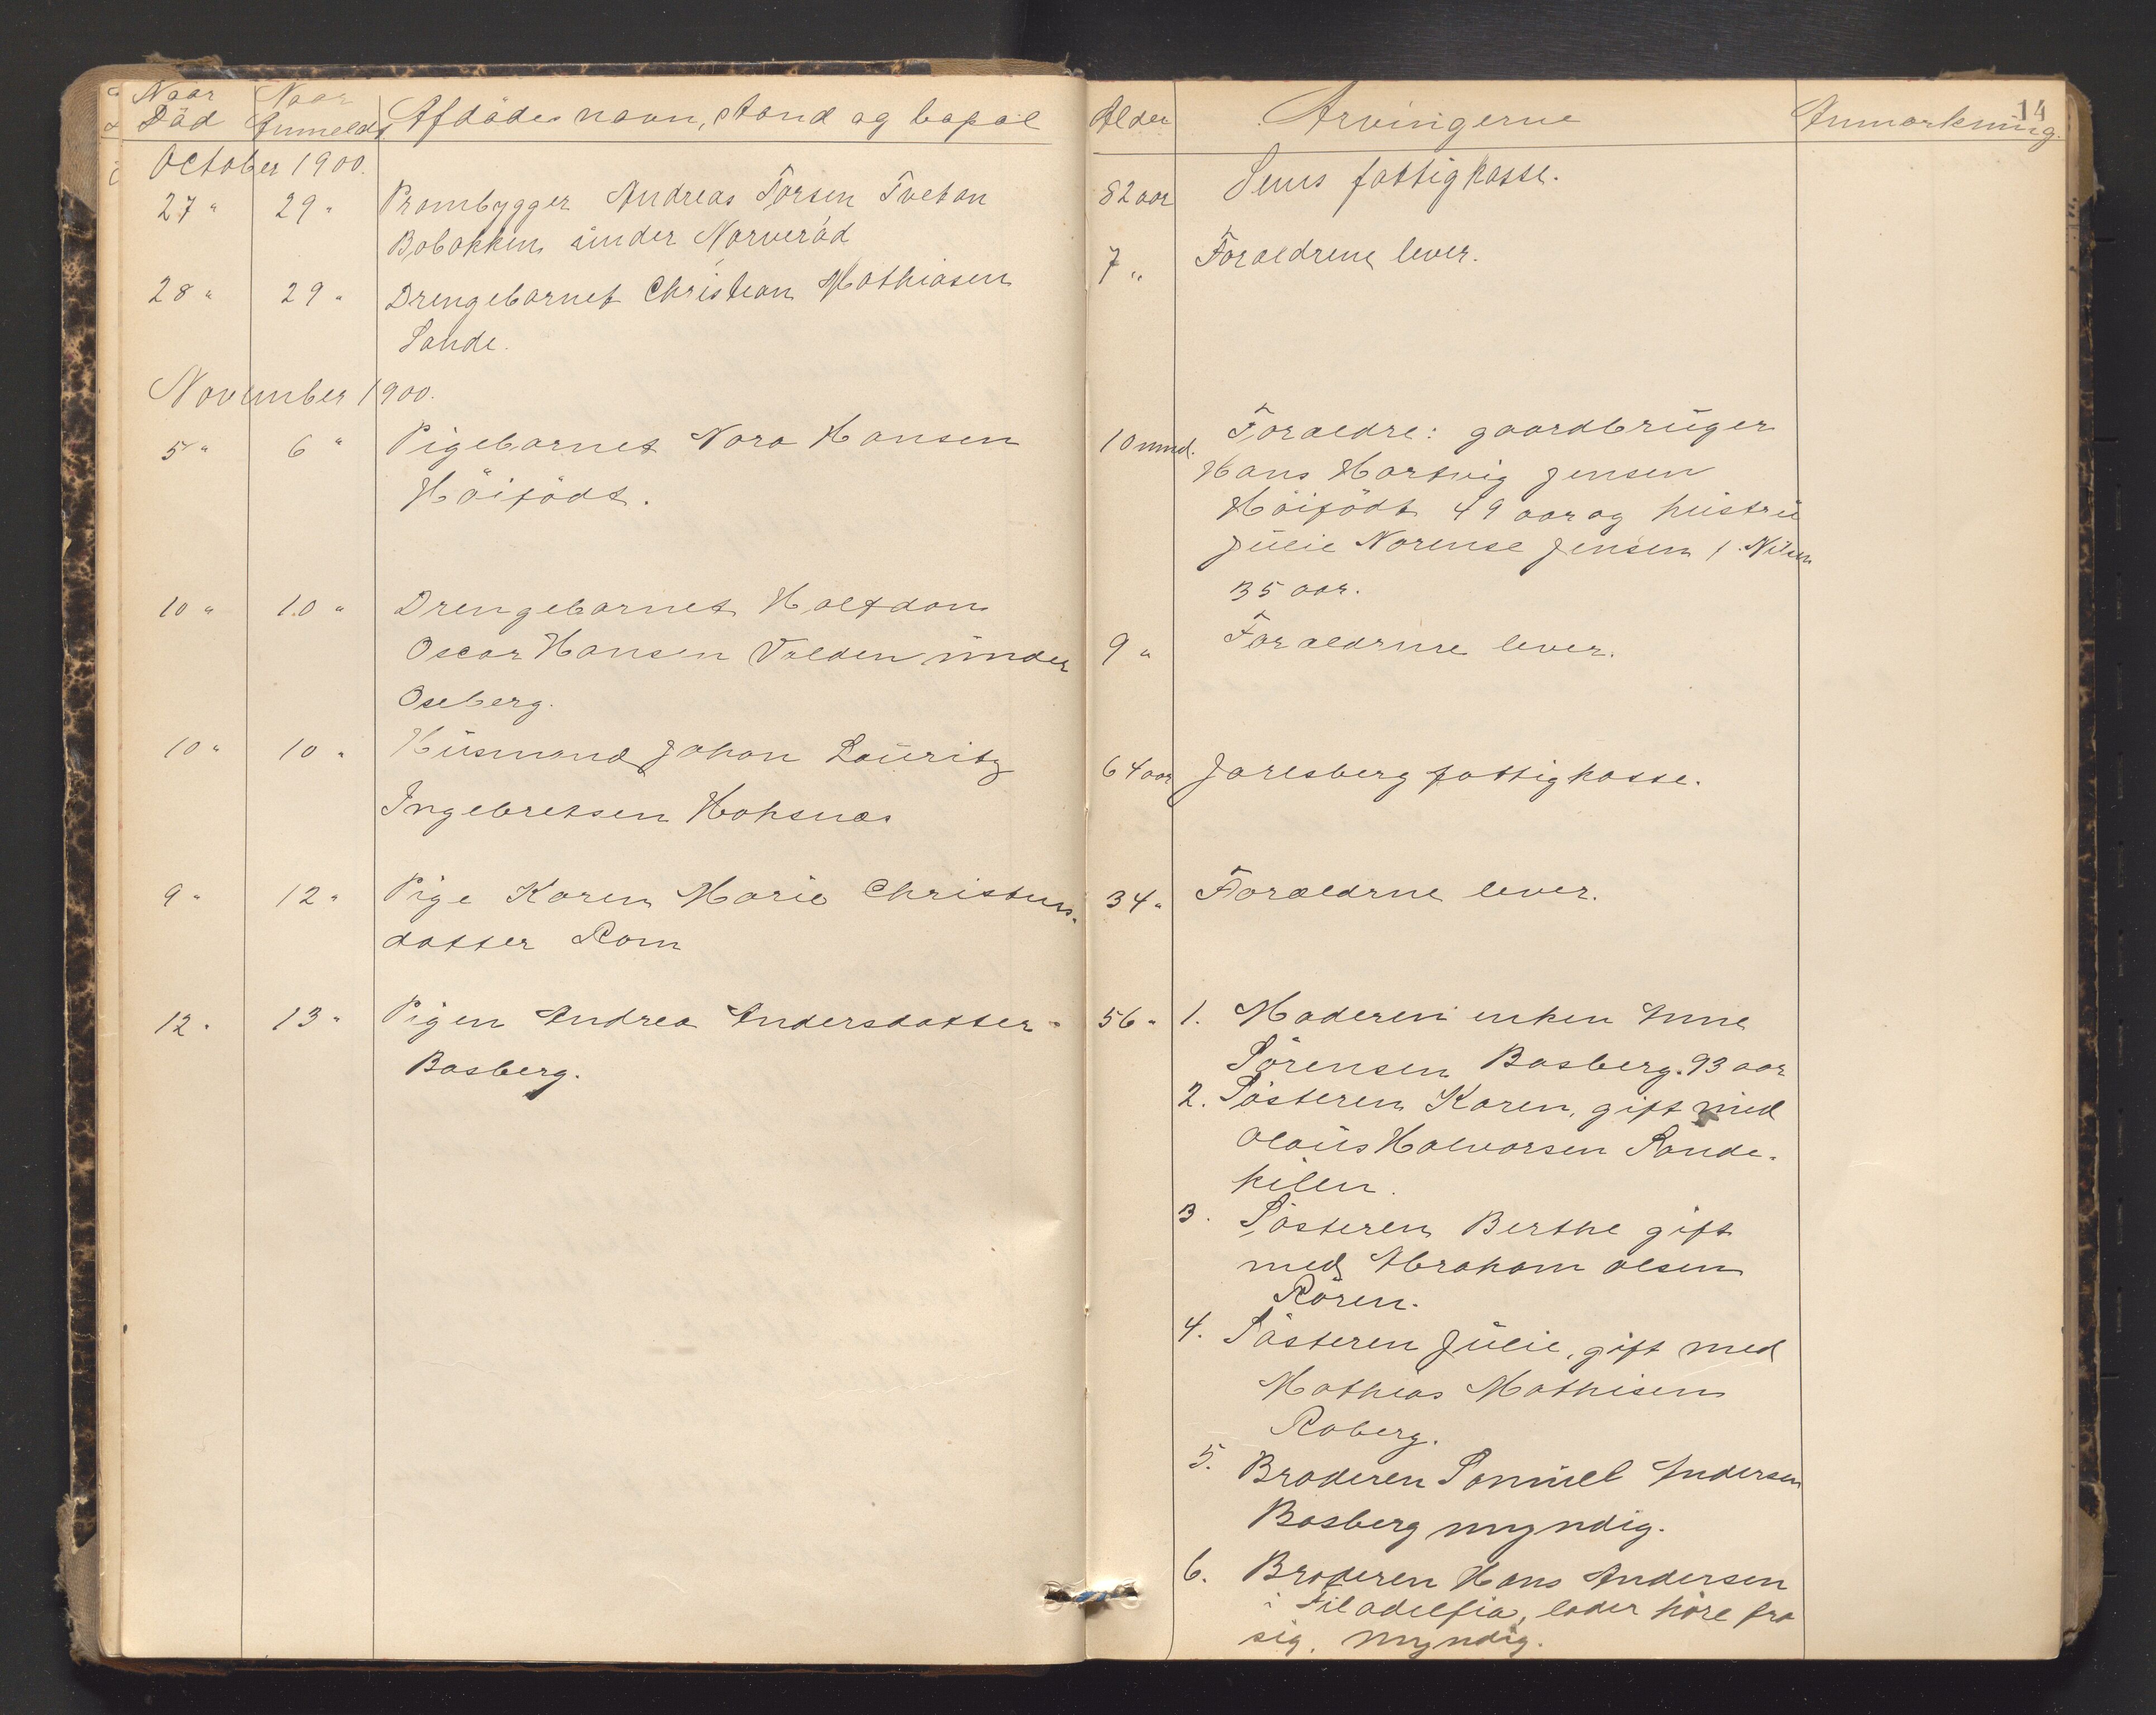 Naar Død Naar Anmeldt Afdødes navn, stand og bopæl
October 1900.
27 " 29 " Prambygger Andreas Torsen Tvetan
Bobakken under Narverød
28 " 29 " Drengebarnet Christian Mathiasen
Sande.
November 1900.
5 " 6 " Pigebarnet Nora Hansen
Höijödt.
10 " 10 " Drengebarnet Halfdan
Oscar Hansen Volden under
Oseberg.
10 " 10 " Husmand Johan Lauritz
Ingebretsen Hohsnæs
9 " 12 " Pige Karen Marie Christens-
datter Rom
12 " 13 " Pigen Andrea Andersdatter
Basberg.
Alder Arvingerne Anmærkning.
14
82 aar Sems fattigkasse.
7 " Forældrene lever.
10 mnd. Forældre: gaardbruger
Hans Hartvig Jensen
Höijödt 49 aar og hustru
Julie Norense Jensen f. Nilsen
35 aar.
9 " Forældrene lever.
64 aar Jarlsberg fattigkasse.
34 " Forældrne lever.
56 " 1. Moderen enken Anne
Sörensen Basberg. 93 aar
2. Søsteren Karen, gift med
Olaus Halvorsen Sande-
kilen.
3. Søsteren Berthe gift
med Abraham Olsen
Rören.
4. Søsteren Julie, gift med
Mathias Mathisen
Roberg.
5. Broderen Samuel Andersen
Basberg myndig.
6. Broderen Hans Andersen
i Filadelfia, lader høre fra
sig. myndig.